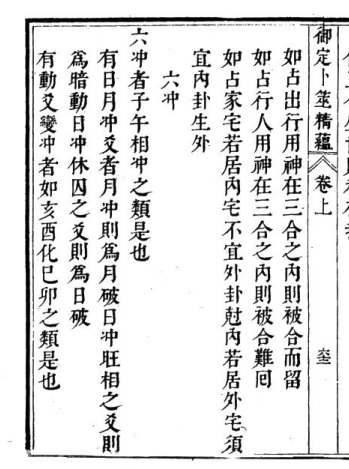 御定卜筮精蘊 卷上
如占出行用神在三合之內則被合而留
如占行人用神在三合之內則被合難囘
如占家宅若居內宅不宜外卦尅內若居外宅須
宜內卦生外
六冲
六冲者子午相冲之類是也
有日月冲爻者月冲則爲月破日冲旺相之爻則
爲暗動日冲休囚之爻則爲日破
有動爻變冲者如亥酉化巳卯之類是也